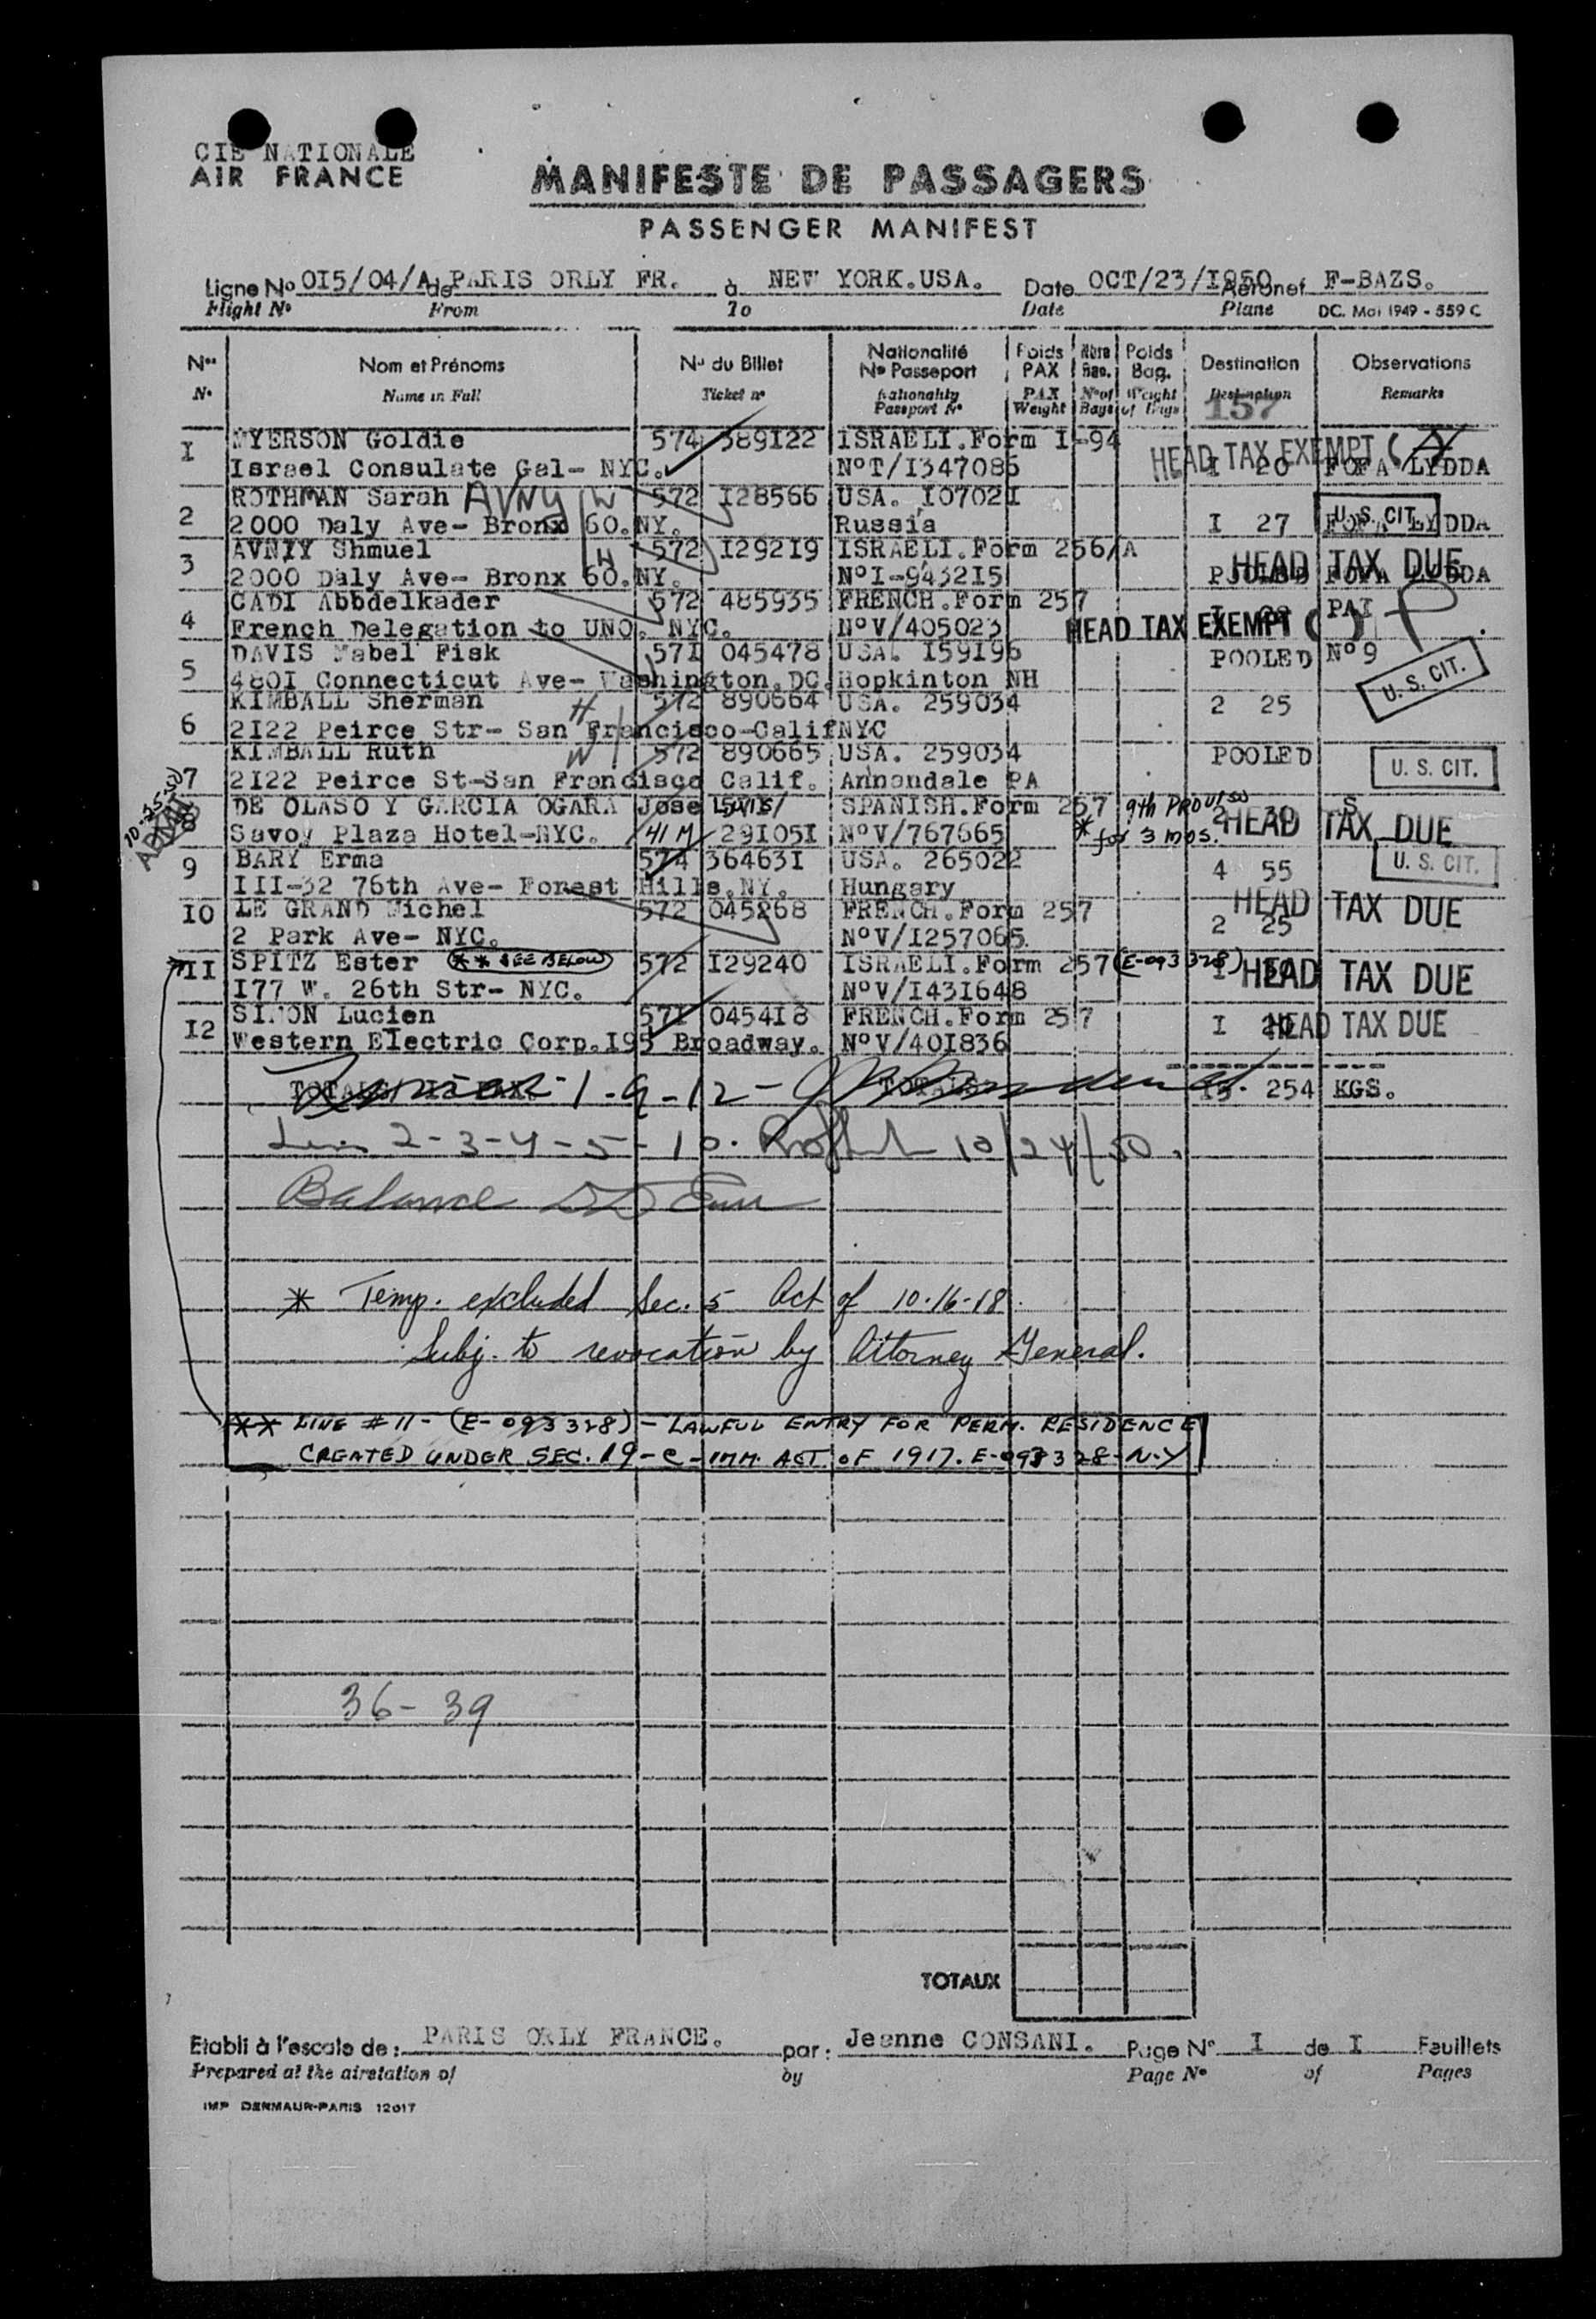 CIE NATIONALE
AIR FRANCE
MANIFESTE DE PASSAGERS
PASSENGER MANIFEST
Ligne No 0I5/04/A de PARIS ORLY FR. à NEW YORK.USA. Date OCT/23/I950 Aéronef F-BAZS.
Flight No From To Date Plane DC. Mai 1949 - 559 C
Nos Nom et Prénoms No du Billet Nationalité No Passeport Poids PAX Nbre Bag. Poids Bag. Destination Observations
No. Name in Full Ticket no Nationality Passport No PAX Weight No of Bags Weight of Bags Destination Remarks
157
I MYERSON Goldie 574 389I22 ISRAELI.Form I-94 HEAD TAX EXEMPT (
Israel Consulate Gal- NYC. NoT/I347086 I 20 FOFA LYDDA
2 ROTHMAN Sarah AVNY W 572 I28566 USA. I0702I
2000 Daly Ave- Bronx 60.NY. Russia I 27 FOFA LYDDA U. S. CIT.
3 AVNIY Shmuel H 572 I292I9 ISRAELI.Form 256/A HEAD TAX DUE
2000 Daly Ave- Bronx 60.NY. NoI-9432I5 POOLED FOFA LYDDA
4 CADI Abbdelkader 572 485935 FRENCH.Form 257 PAI
French Delegation to UNO. NYC. NoV/405023 HEAD TAX EXEMPT ( )
5 DAVIS Mabel Fisk 57I 045478 USA. I59I96 POOLED No9
480I Connecticut Ave- Washington.DC. Hopkinton NH U. S. CIT.
6 KIMBALL Sherman H 572 890664 USA. 259034 2 25
2I22 Peirce Str- San Francisco-Calif NYC
7 KIMBALL Ruth W 572 890665 USA. 259034 POOLED
2I22 Peirce St-San Francisco Calif. Annandale PA U. S. CIT.
10-25-50
8 DE OLASO Y GARCIA OGARA Jose LUIS/ SPANISH.Form 257 9th PROVISO 2 30 S
Savoy Plaza Hotel-NYC. 41 M 29I05I NoV/767665 * for 3 mos. HEAD TAX DUE
9 BARY Erma 574 36463I USA. 265022 4 55 U. S. CIT.
III-32 76th Ave- Forest Hills.NY. Hungary
I0 LE GRAND Michel 572 045268 FRENCH.Form 257 HEAD TAX DUE
2 Park Ave- NYC. NoV/I257065 2 25
II SPITZ Ester ** SEE BELOW 572 I29240 ISRAELI.Form 257 (E-093 328) HEAD TAX DUE
I77 W. 26th Str- NYC. NoV/I43I648
I2 SIMON Lucien 57I 0454I8 FRENCH.Form 257 I 20 HEAD TAX DUE
Western Electric Corp.I95 Broadway. NoV/40I836
1-9-12- TOTALS I5 254 KGS.
2-3-4-5-10. 10/24/50.
Balance
* Temp. excluded Sec. 5 Act of 10-16-18.
Subj. to revocation by Attorney General.
** LINE # 11- (E-093328) - LAWFUL ENTRY FOR PERM. RESIDENCE
CREATED UNDER SEC. 19-C-IMM. ACT OF 1917. E-093328-N.Y
36- 39
TOTAUX
Etabli à l'escale de : PARIS ORLY FRANCE. par : Jeanne CONSANI. Page No I de I Feuillets
Prepared at the airstation of by Page No of Pages
IMP DERMAUR-PARIS 12017